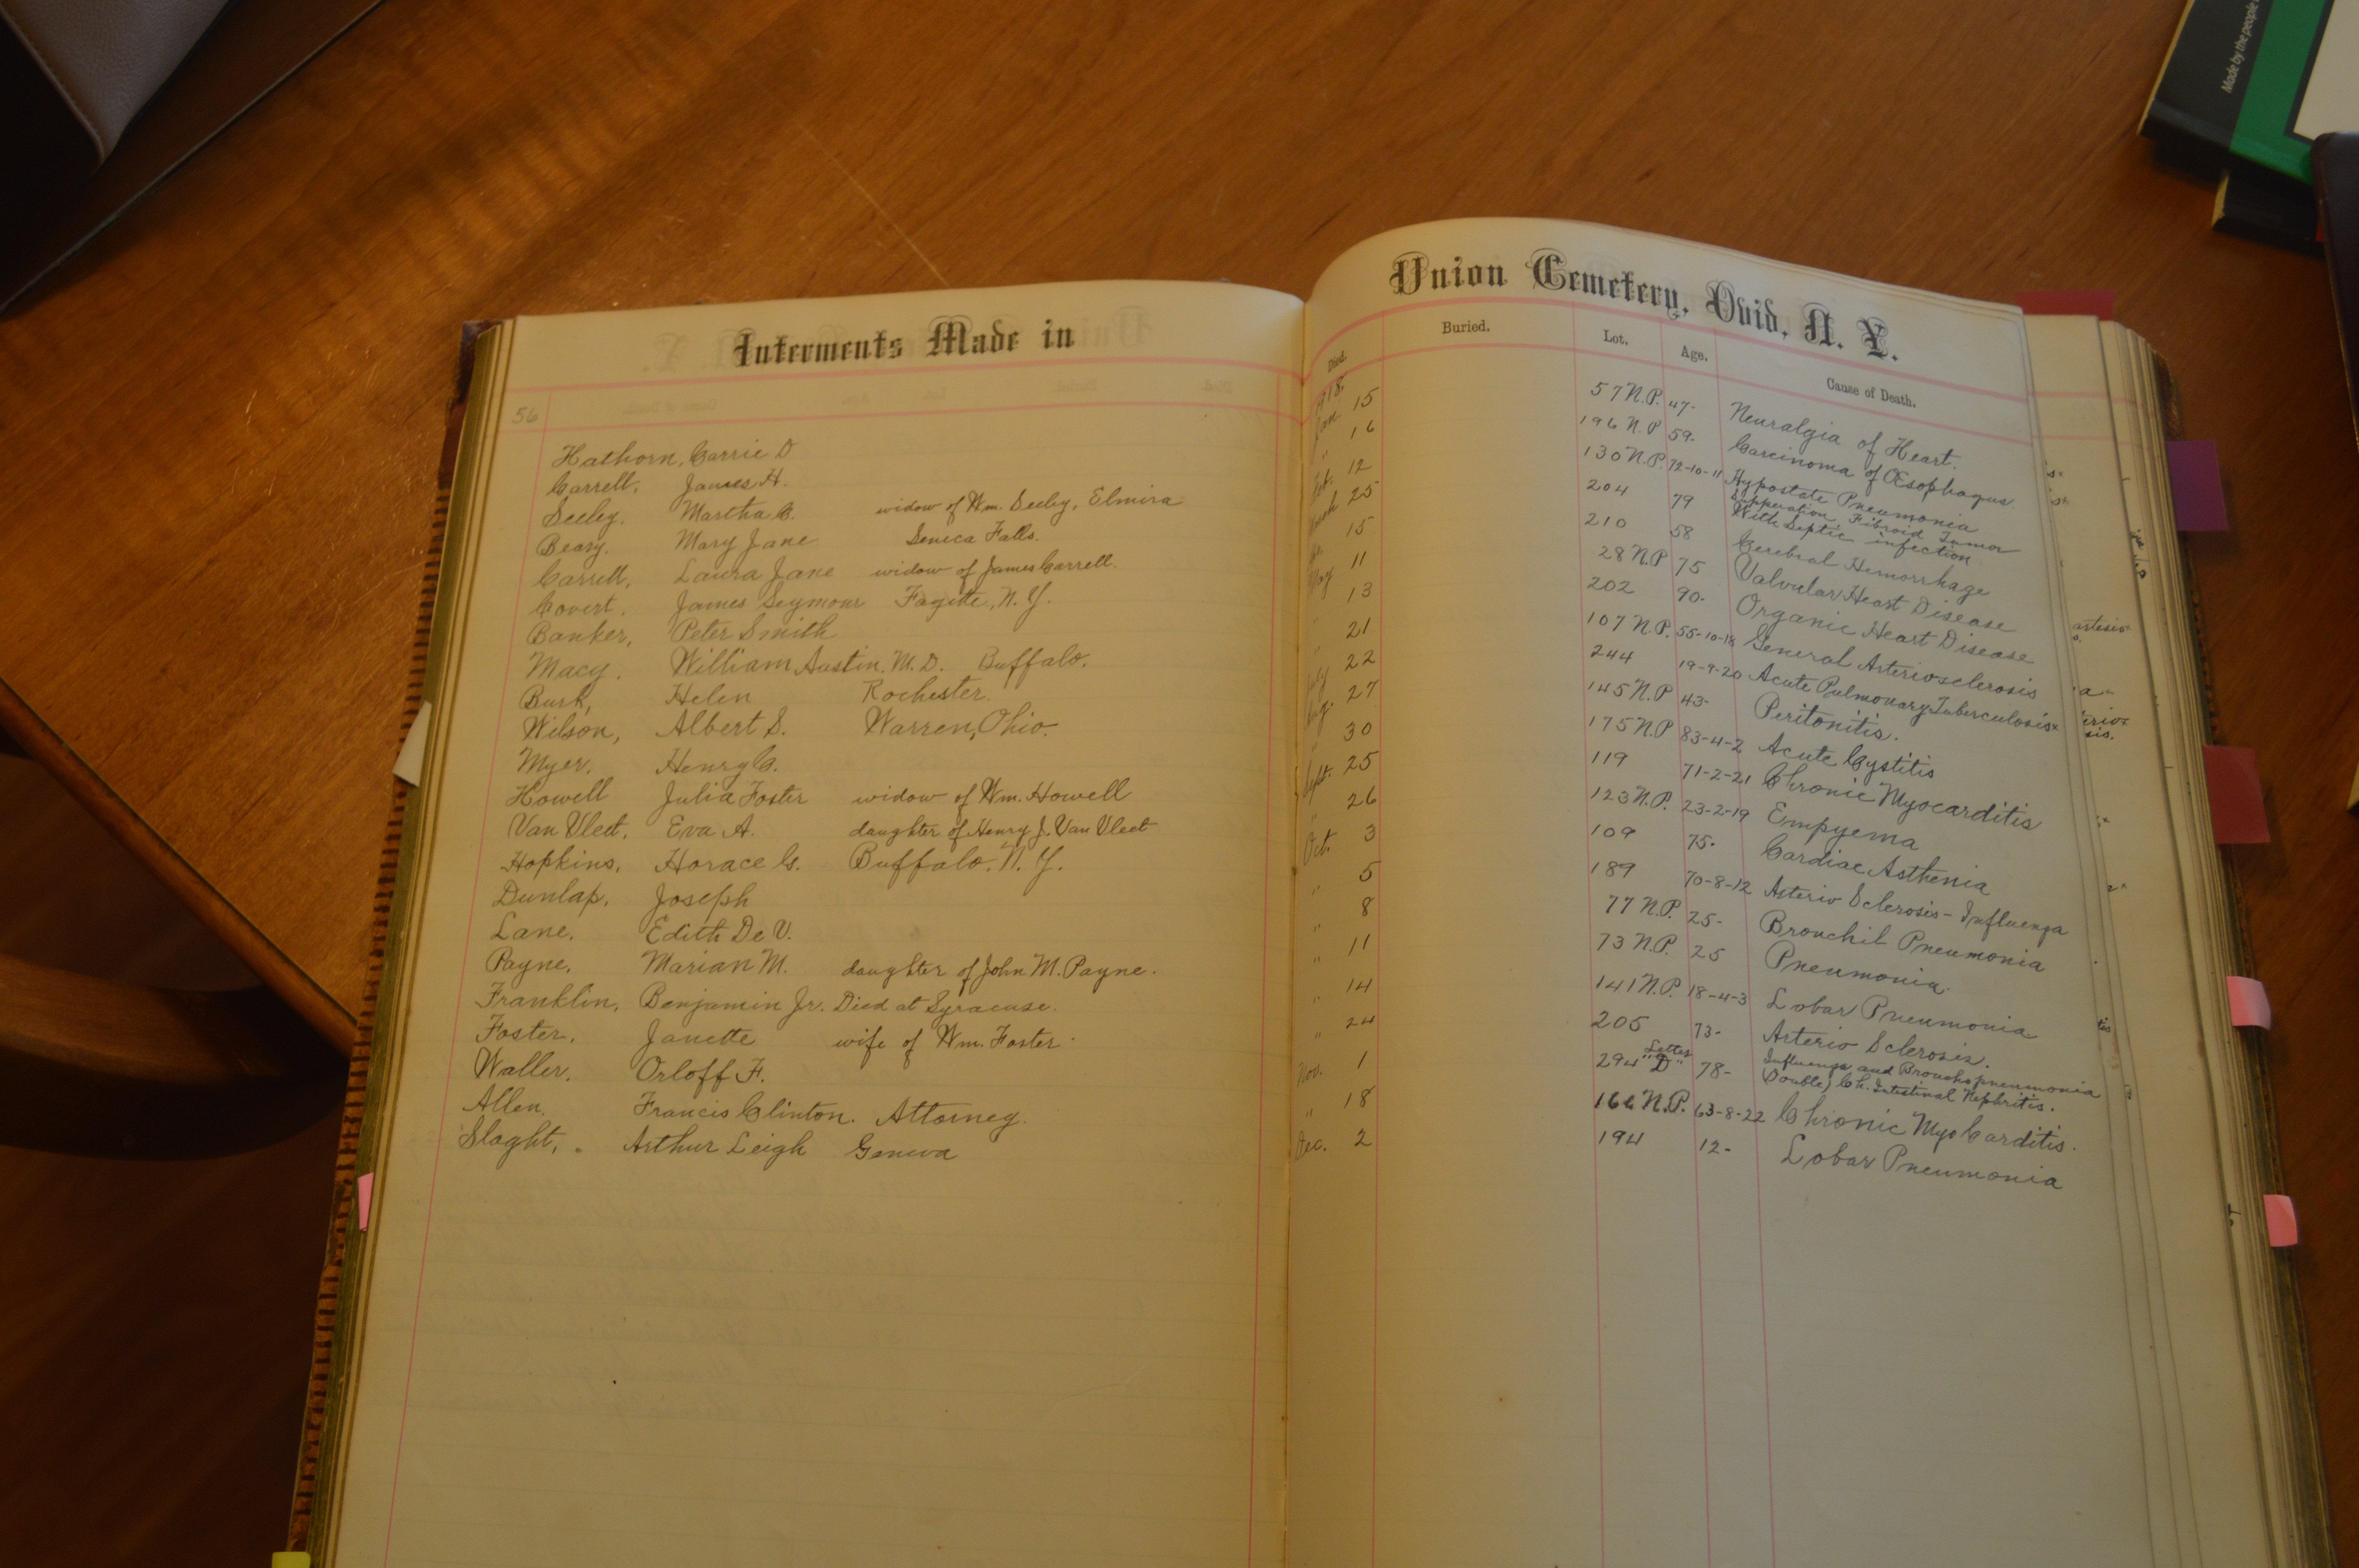 Made by the people
Interments Made in
56
Hathorn, Carrie D
Carrell, James H.
Seeley. Martha C. widow of Wm. Seeley, Elmira
Beary. Mary Jane Seneca Falls.
Carrell, Laura Jane widow of James Carrell.
Covert. James Seymour Fayette, N.Y.
Banker, Peter Smith
Macy. William Austin, M.D. Buffalo.
Burk, Helen Rochester.
Wilson, Albert S. Warren, Ohio.
Myer, Henry C.
Howell Julia Foster widow of Wm. Howell
Van Vleet, Eva A. daughter of Henry J. Van Vleet
Hopkins, Horace G. Buffalo. N.Y.
Dunlap, Joseph
Lane. Edith De V.
Payne, Marian M. daughter of John M. Payne.
Franklin, Benjamin Jr. Died at Syracuse.
Foster, Janette wife of Wm. Foster
Waller. Orloff F.
Allen. Francis Clinton. Attorney.
Slaght, Arthur Leigh Geneva
Union Cemetery, Ovid, N. Y.
Died. Buried. Lot. Age. Cause of Death.
1918.
Jan. 15 57 N.P. 47- Neuralgia of Heart.
" 16 196 N.P 59. Carcinoma of Œsophagus
Feb. 12 130 N.P. 72-10-11 Hypostate Pneumonia
March 25 204 79 Suppuration Fibroid Tumor
With Septic infection
15 210 58 Cerebral Hemorrhage
May 11 28 N.P 75 Valvular Heart Disease
" 13 202 90- Organic Heart Disease
" 21 107 N.P. 55-10-18 General Arteriosclerosis
July 22 244 19-9-20 Acute Pulmonary Tuberculosis
Aug. 27 145 N.P 43- Peritonitis.
" 30 175 N.P 83-4-2 Acute Cystitis
Sept. 25 119 71-2-21 Chronic Myocarditis
" 26 123 N.P. 23-2-19 Empyema
Oct. 3 109 75- Cardiac Asthenia
" 5 189 70-8-12 Arterio Sclerosis - Influenza
" 8 77 N.P. 25- Bronchil Pneumonia
" 11 73 N.P. 25 Pneumonia
" 14 141 N.P. 18-4-3 Lobar Pneumonia
" 24 205 73- Arterio Sclerosis.
Nov. 1 294 Letter "D" 78- Influenza and Bronchopneumonia
(Double) Ch. Intestinal Nephritis.
" 18 166 N.P. 63-8-22 Chronic Myo Carditis.
Dec. 2 194 12- Lobar Pneumonia